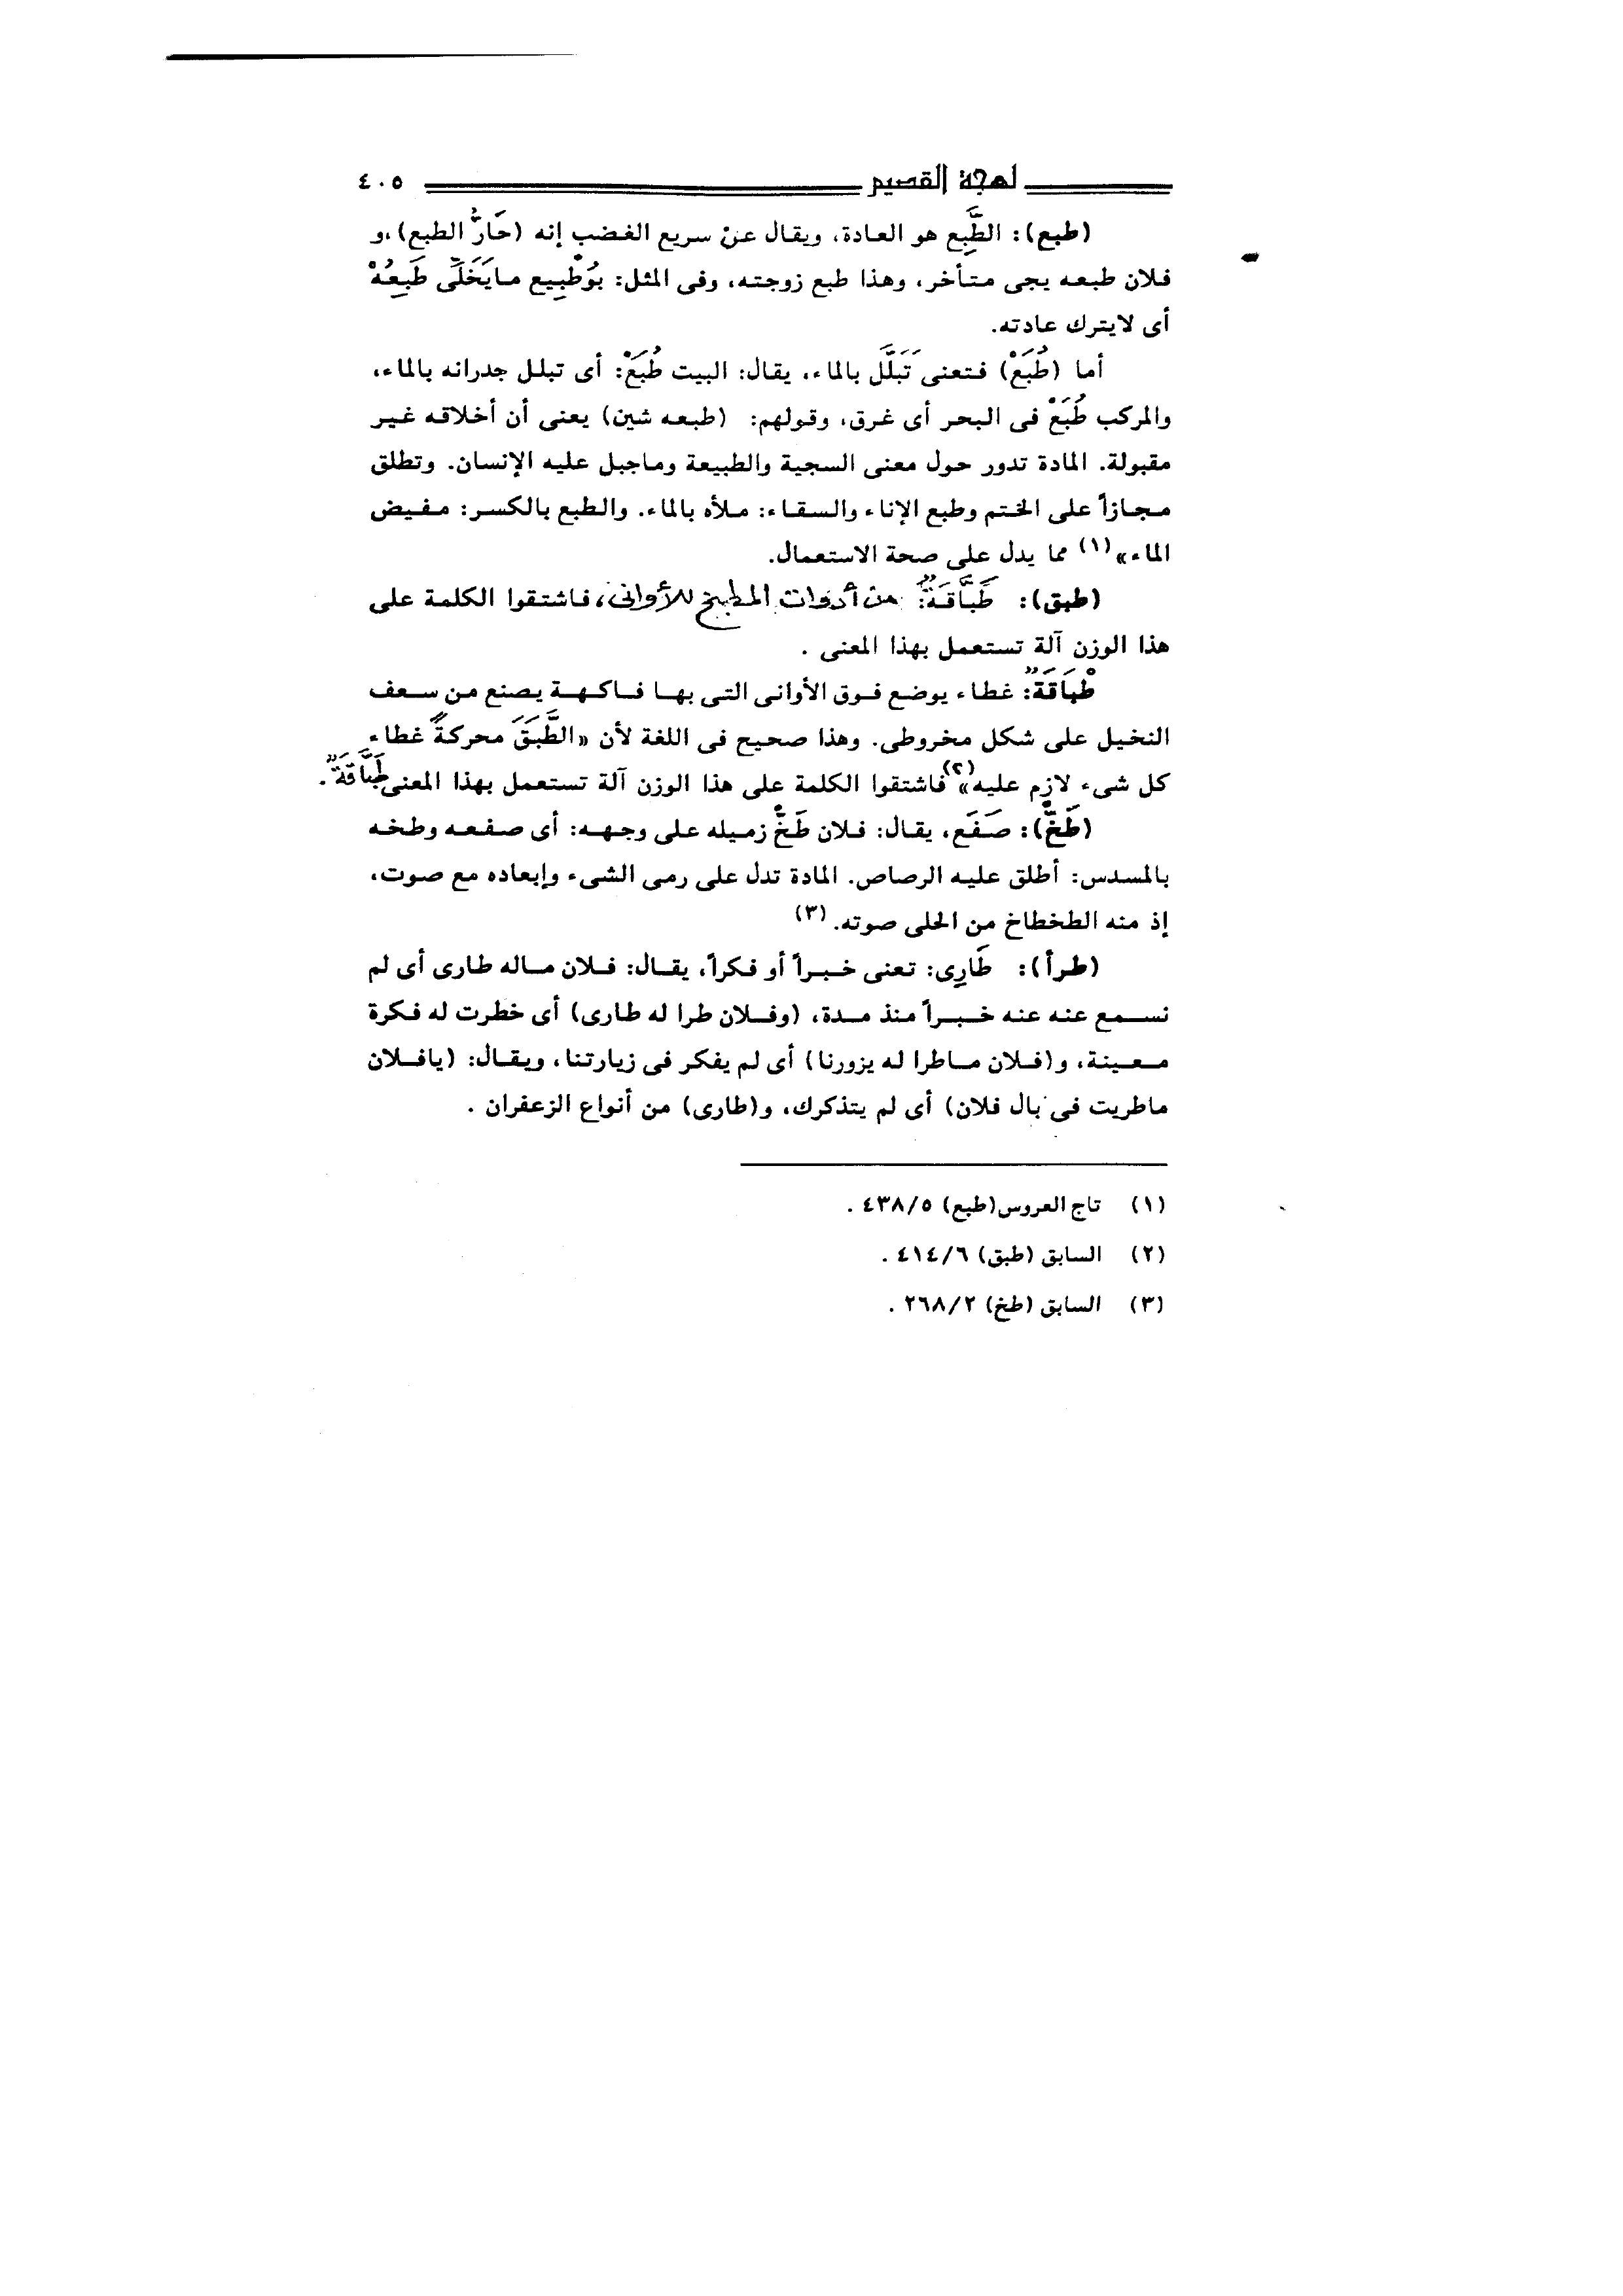 لهجة القصيم ٤٠٥
(طبع): الطَّبِع هو العادة، ويقال عن سريع الغضب إنه (حَارُّ الطبع)،و
فلان طبعه يجى متأخر، وهذا طبع زوجته، وفى المثل: بُوَطْبِيع مايَخَلَّى طَبِعُهْ
أى لايترك عادته.
أما (طُبَعْ) فتعنى تَبَلَّلَ بالماء، يقال: البيت طُبَعْ: أى تبلل جدرانه بالماء،
والمركب طُبَعْ فى البحر أى غرق، وقولهم: (طبعه شين) يعنى أن أخلاقه غير
مقبولة. المادة تدور حول معنى السجية والطبيعة وماجبل عليه الإنسان. وتطلق
مجازاً على الختم وطبع الإناء والسقاء: ملأه بالماء. والطبع بالكسر: مفيض
الماء» (١) مما يدل على صحة الاستعمال.
(طبق): طَبَّاقَةٌ: من أدوات المطبخ للأوانى، فاشتقوا الكلمة على
هذا الوزن آلة تستعمل بهذا المعنى .
طْبَاقَةٌ: غطاء يوضع فوق الأوانى التى بها فاكهة يصنع من سعف
النخيل على شكل مخروطى. وهذا صحيح فى اللغة لأن «الطَّبَقَ محركةً غطاء
كل شىء لازم عليه» (٢) فاشتقوا الكلمة على هذا الوزن آلة تستعمل بهذا المعنى طَبَّاقَةٌ .
(طَخّْ): صَفَع، يقال: فلان طَخّْ زميله على وجهه: أى صفعه وطخه
بالمسدس: أطلق عليه الرصاص. المادة تدل على رمى الشىء وإبعاده مع صوت،
إذ منه الطخطاخ من الحلى صوته. (٣)
(طرأ): طَارِى: تعنى خبراً أو فكراً، يقال: فلان ماله طارى أى لم
نسمع عنه عنه خبراً منذ مدة، (وفلان طرا له طارى) أى خطرت له فكرة
معينة، و(فلان ماطرا له يزورنا) أى لم يفكر فى زيارتنا، ويقال: (يافلان
ماطريت فى بال فلان) أى لم يتذكرك، و(طارى) من أنواع الزعفران .
(١) تاج العروس(طبع) ٤٣٨/٥ .
(٢) السابق (طبق) ٤١٤/٦ .
(٣) السابق (طخ) ٢٦٨/٢ .